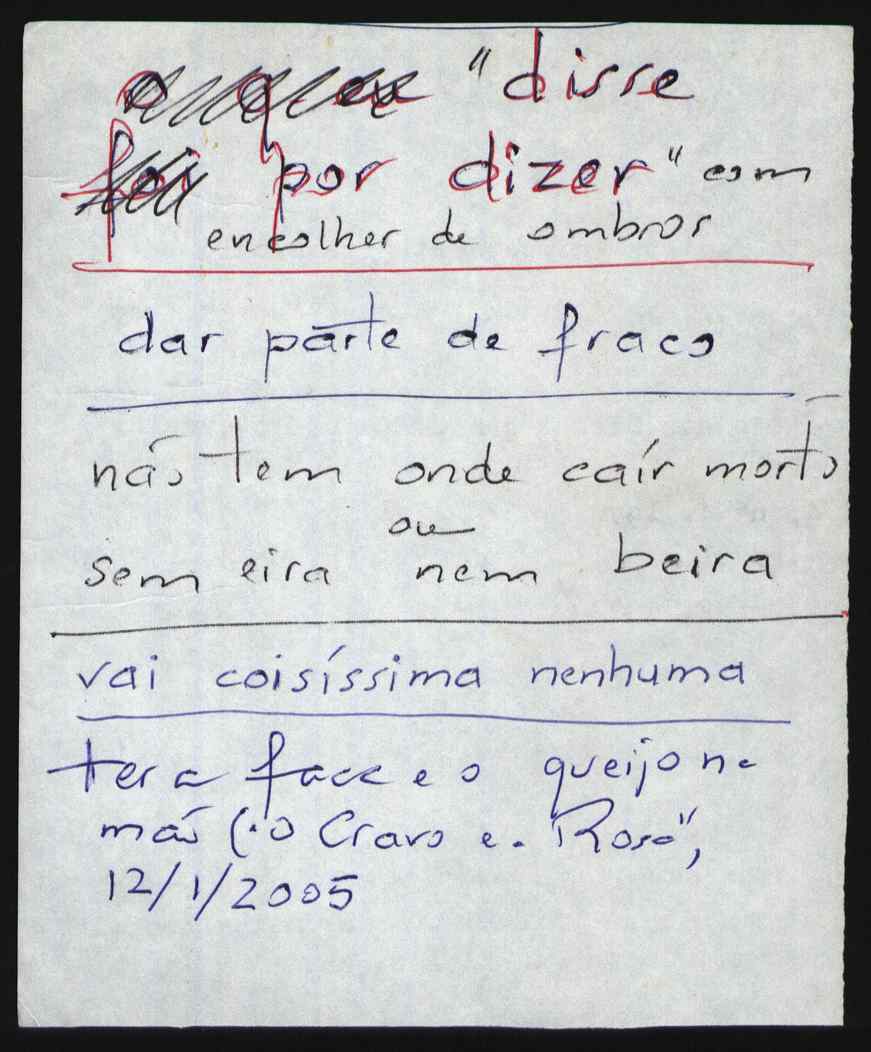 o que "disse
foi por dizer" com
encolher de ombros
dar parte de fraco
não tem onde caír morto
ou
sem eira nem beira
vai coisíssima nenhuma
ter a faca e o queijo na
mão ("O Cravo e a Rosa",
12/1/2005